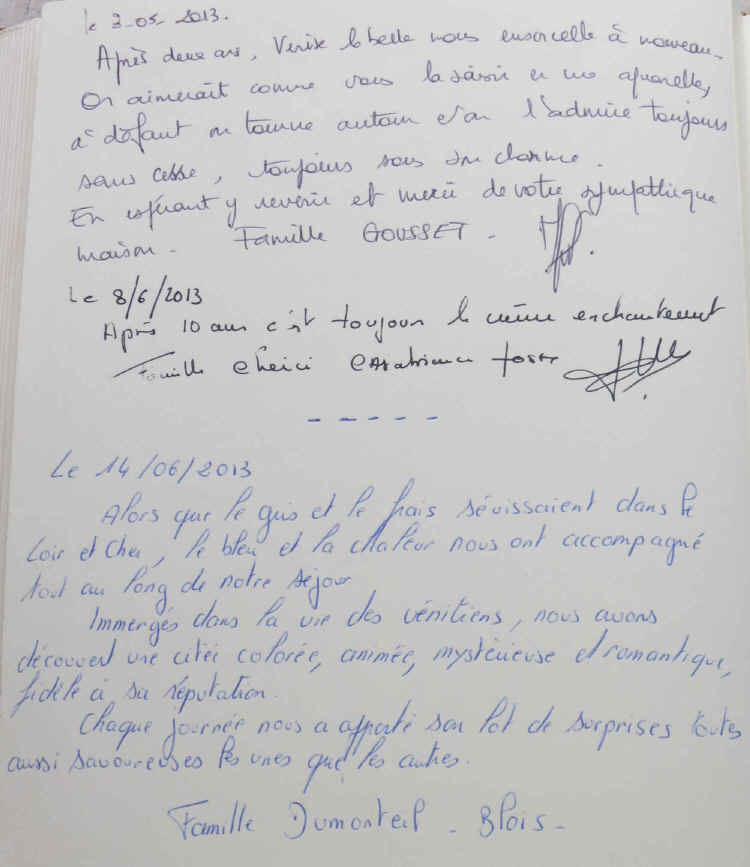 le 3-05-2013.
Après deux ans, Venise la belle nous ensorcelle à nouveau.
On aimerait comme vous la saisir en vos aquarelles,
à défaut on tourne autour et on l'admire toujours
sans cesse, toujours sous son charme.
En espérant y revenir et merci de votre sympathique
maison. Famille GOUSSET.
Le 8/6/2013
Après 10 ans c'est toujours le même enchantement
Famille
- - - - -
Le 14/06/2013
Alors que le gris et le frais sévissaient dans le
Loir et Cher, le bleu et la chaleur nous ont accompagné
tout au long de notre séjour
Immergés dans la vie des vénitiens, nous avons
découvert une citée colorée, animée, mystérieuse et romantique,
fidèle à sa réputation.
Chaque journée nous a apporté son lot de surprises toutes
aussi savoureuses les unes que les autres.
Famille Dumonteil - Blois -